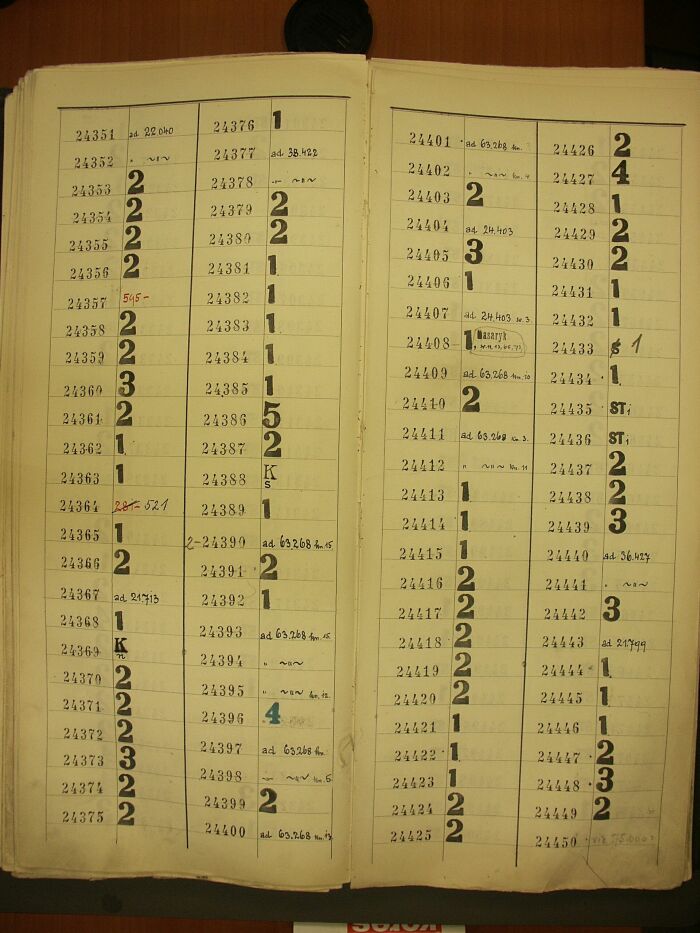 24351 ad 22040
24352 " ~"~
24353 2
24354 2
24355 2
24356 2
24357 595-
24358 2
24359 2
24360 3
24361 2
24362 1
24363 1
24364 281- 521
24365 1
24366 2
24367 ad 21713
24368 1
24369 K n
24370 2
24371 2
24372 2
24373 3
24374 2
24375 2
24376 1
24377 ad 38.422
24378 -"- ~"~
24379 2
24380 2
24381 1
24382 1
24383 1
24384 1
24385 1
24386 5
24387 2
24388 K s
24389 1
2-24390 ad 63.268 kn. 15
24391 2
24392 1
24393 ad 63.268 kn. 15.
24394 " ~"~
24395 " ~"~ kn. 12.
24396 4
24397 ad 63.268 kn.
24398 -"- ~"~ kn. 5.
24399 2
24400 ad 63.268 kn. 13
24401 ad 63.268 kn.
24402 " ~"~ kn. 4
24403 2
24404 ad 24.403
24405 3
24406 1
24407 ad 24.403 sv. 3.
24408 1, Masaryk
24409 ad 63.268 kn. 10
24410 2
24411 ad 63.268 kn. 3.
24412 " ~"~ kn. 11
24413 1
24414 1
24415 1
24416 2
24417 2
24418 2
24419 2
24420 2
24421 1
24422 1
24423 1
24424 2
24425 2
24426 2
24427 4
24428 1
24429 2
24430 2
24431 1
24432 1
24433 1
24434 1
24435 STi
24436 STi
24437 2
24438 2
24439 3
24440 ad 36.427
24441 " ~"~
24442 3
24443 ad 21.799
24444 1
24445 1
24446 1
24447 2
24448 3
24449 2
24450